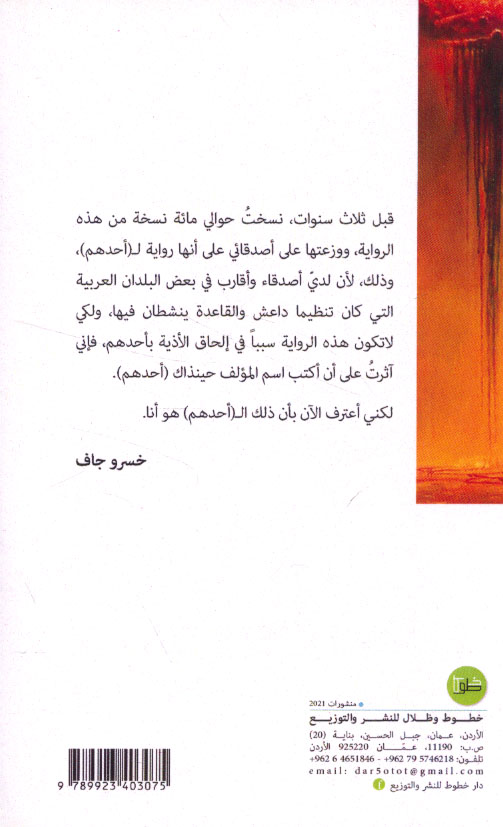 قبل ثلاث سنوات، نسختُ حوالي مائة نسخة من هذه
الرواية، ووزعتها على أصدقائي على أنها رواية لـ(أحدهم)،
وذلك، لأن لديّ أصدقاء وأقارب في بعض البلدان العربية
التي كان تنظيما داعش والقاعدة ينشطان فيها، ولكي
لاتكون هذه الرواية سبباً في إلحاق الأذية بأحدهم، فإني
آثرتُ على أن أكتب اسم المؤلف حينذاك (أحدهم).
لكني أعترف الآن بأن ذلك الـ(أحدهم) هو أنا.
خسرو جاف
خطوط
منشورات 2021
خطوط وظلال للنشر والتوزيع
الأردن، عمان، جبل الحسين، بناية (20)
ص.ب: 11190، عمّان 925220 الأردن
تلفون: 5746218 79 962+ - 4651846 6 962+
email: dar5otot@gmail.com
دار خطوط للنشر والتوزيع f
9 789923 403075